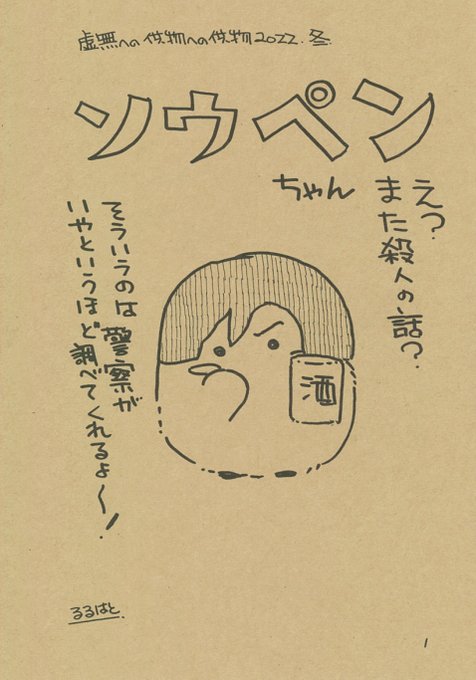 虚無への供物への供物2022.冬.
ソウペン
ちゃん
え?
また殺人の話?
そういうのは警察が
いやというほど調べてくれるよ〜!
酒
るるはと.
1